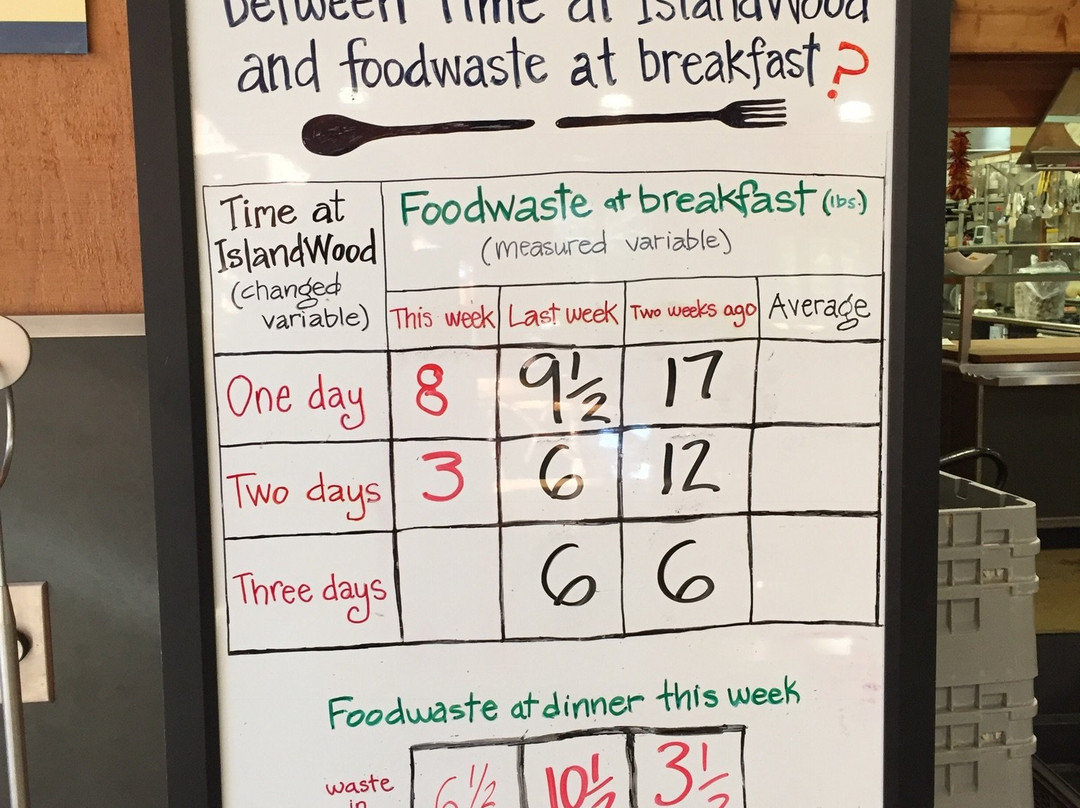 Between Time at IslandWood
and foodwaste at breakfast?
Time at
IslandWood
(changed
variable)
Foodwaste at breakfast (lbs.)
(measured variable)
This week Last week Two weeks ago Average
One day 8 9 1/2 17
Two days 3 6 12
Three days 6 6
Foodwaste at dinner this week
waste
in
6 1/2 10 1/2 3 1/2